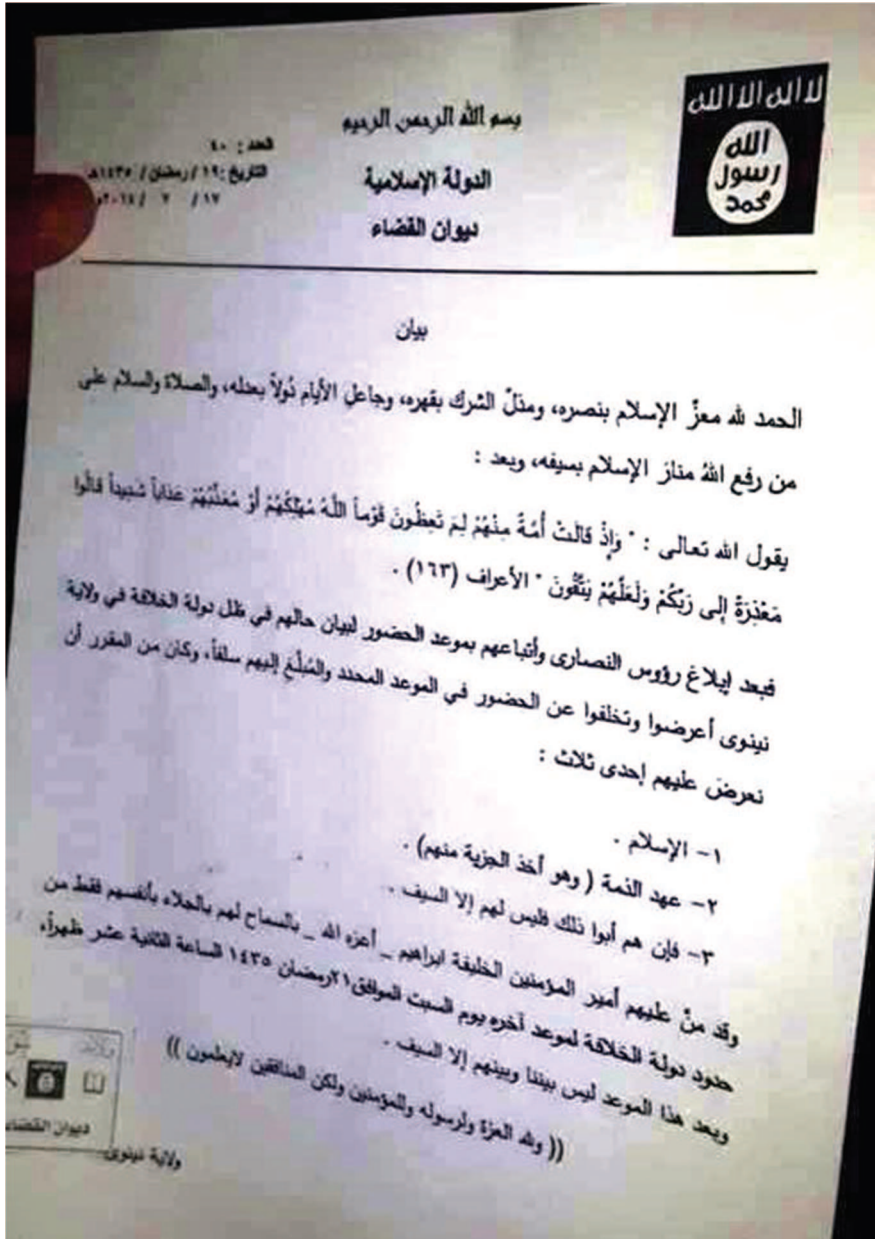 لا اله الا الله
الله
رسول
محمد
بسم الله الرحمن الرحيم
الدولة الإسلامية
ديوان القضاء
العدد : ٤٠
التاريخ : ١٩ / رمضان / ١٤٣٥هـ
١٧ / ٧ / ٢٠١٤م
بيان
الحمد لله معزِّ الإسلام بنصره، ومذلّ الشرك بقهره، وجاعل الأيام دُولاً بعدله، والصلاة والسلام على
من رفع اللهُ منارَ الإسلام بسيفه، وبعد :
يقول الله تعالى : " وَإِذْ قَالَتْ أُمَّةٌ مِنْهُمْ لِمَ تَعِظُونَ قَوْماً اللَّهُ مُهْلِكُهُمْ أَوْ مُعَذِّبُهُمْ عَذَاباً شَدِيداً قَالُوا
مَعْذِرَةً إِلَى رَبِّكُمْ وَلَعَلَّهُمْ يَتَّقُونَ " الأعراف (١٦٣) .
فبعد إبلاغ رؤوس النصارى وأتباعهم بموعد الحضور لبيان حالهم في ظل دولة الخلافة في ولاية
نينوى أعرضوا وتخلفوا عن الحضور في الموعد المحدد والمُبلَّغ إليهم سلفاً، وكان من المقرر أن
نعرضَ عليهم إحدى ثلاث :
١- الإسلام .
٢- عهد الذمة ( وهو أخذ الجزية منهم) .
٣- فإن هم أبوا ذلك فليس لهم إلا السيف .
وقد منّ عليهم أمير المؤمنين الخليفة ابراهيم _ أعزه الله _ بالسماح لهم بالجلاء بأنفسهم فقط من
حدود دولة الخلافة لموعد آخره يوم السبت الموافق٢١رمضان ١٤٣٥ الساعة الثانية عشر ظهراً،
وبعد هذا الموعد ليس بيننا وبينهم إلا السيف .
(( ولله العزة ولرسوله وللمؤمنين ولكن المنافقين لايعلمون ))
ولاية
ديوان القضاء
ولاية نينوى